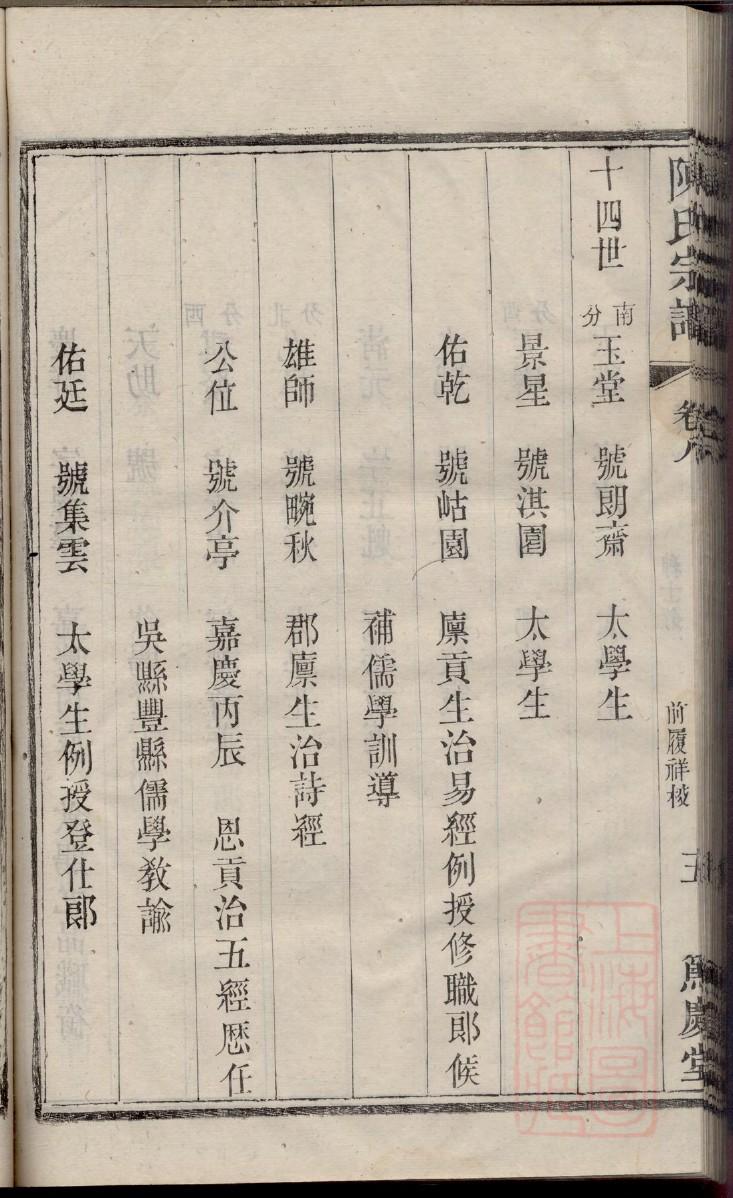 陳氏宗譜 卷六 前履祥棱 五
十四世 南分 玉堂 號朗齋 太學生
景星 號淇園 太學生
佑乾 號岵園 廩貢生治易經例授修職郎候
補儒學訓導
雄師 號畹秋 郡廩生治詩經
公位 號介亭 嘉慶丙辰 恩貢治五經歷任
吳縣豐縣儒學敎諭
佑廷 號集雲 太學生例授登仕郎